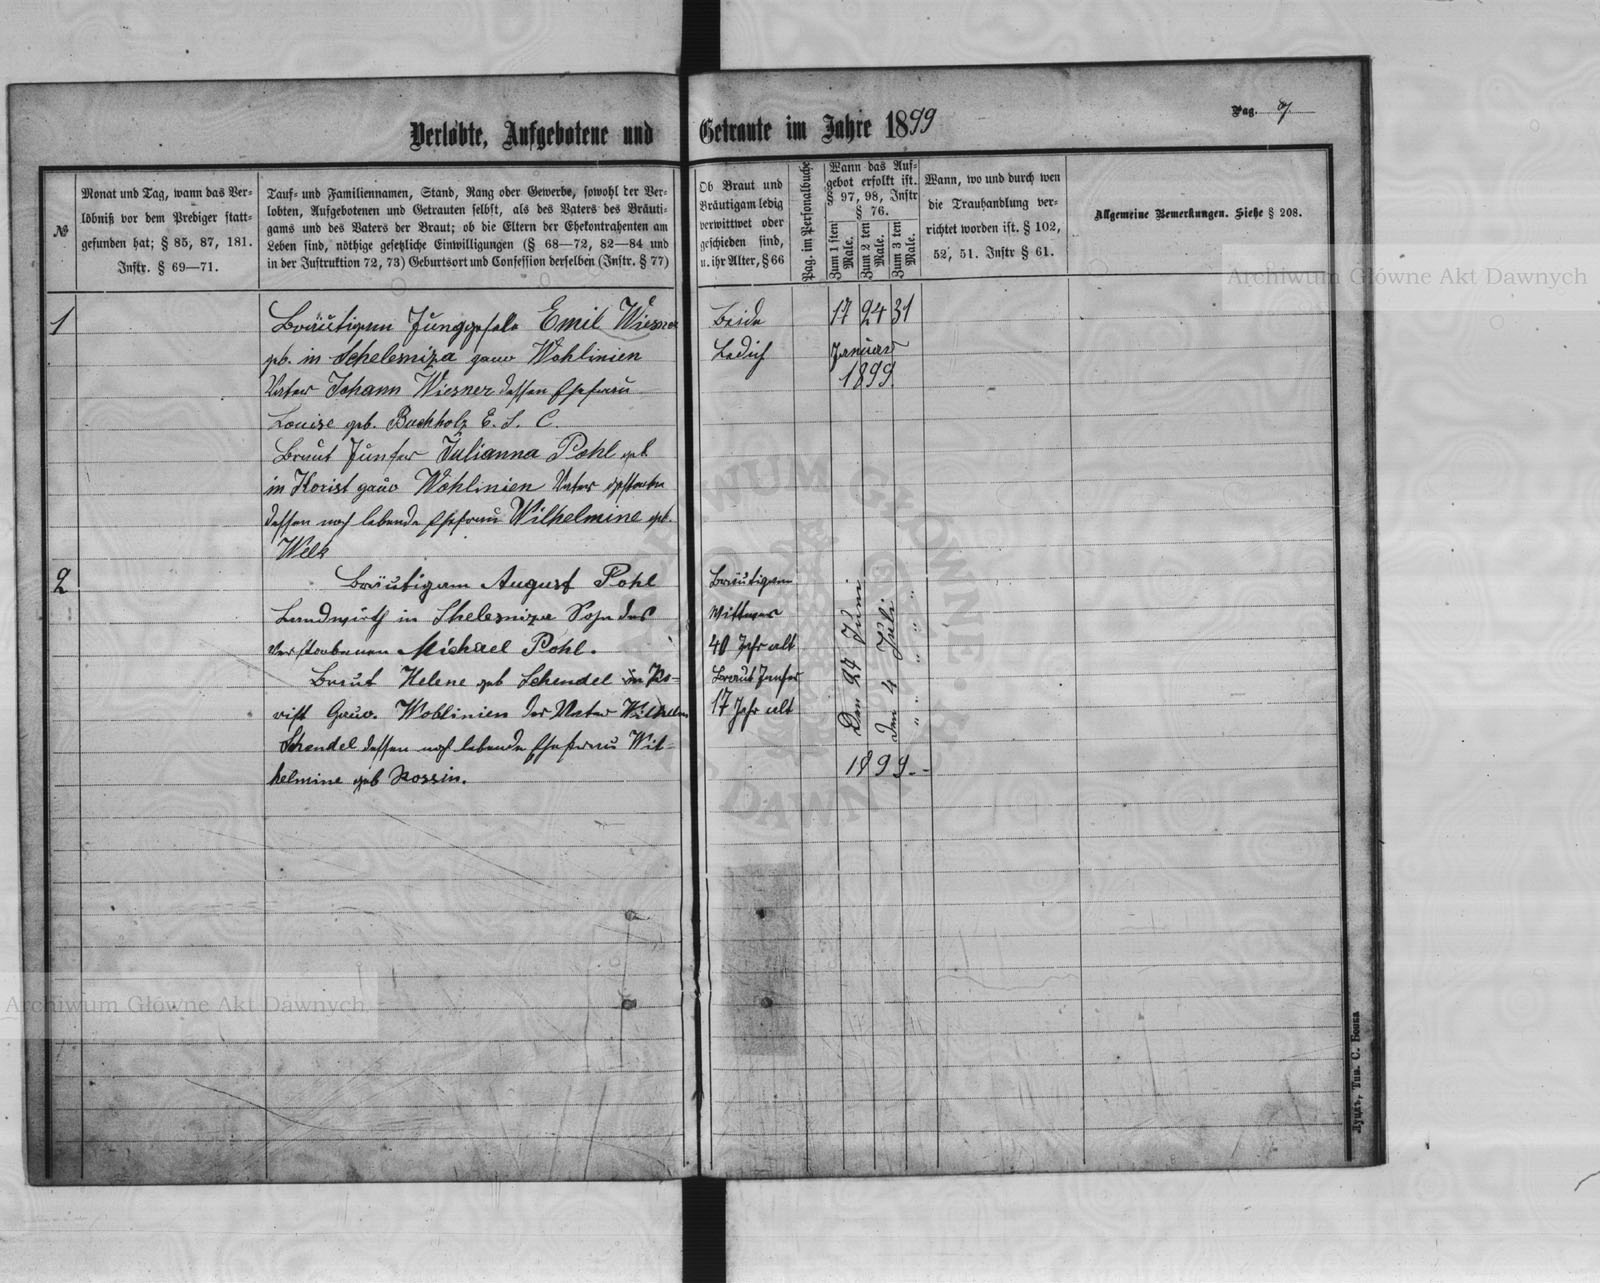 Verlobte, Aufgebotene und Getraute im Jahre 1899
Pag.
№
Monat und Tag, wann das Ver-
löbniß vor dem Prediger statt-
gefunden hat; § 85, 87, 181.
Instr. § 69—71.
Tauf- und Familiennamen, Stand, Rang oder Gewerbe, sowohl der Ver-
lobten, Aufgebotenen und Getrauten selbst, als des Vaters des Bräuti-
gams und des Vaters der Braut; ob die Eltern der Ehekontrahenten am
Leben sind, nöthige gesetzliche Einwilligungen (§ 68—72, 82—84 und
in der Instruktion 72, 73) Geburtsort und Confession derselben (Instr. § 77)
Ob Braut und
Bräutigam ledig
verwittwet oder
geschieden sind,
u. ihr Alter, § 66
Pag. im Personalbuche
Wann das Auf-
gebot erfolkt ist.
§ 97, 98, Instr
§ 76.
Zum 1 sten
Male.
Zum 2 ten
Male.
Zum 3 ten
Male.
Wann, wo und durch wen
die Trauhandlung ver-
richtet worden ist. § 102,
52, 51. Instr § 61.
Allgemeine Bemerkungen. Siehe § 208.
1
Bräutigam Junggesele Emil Wiesner
geb. in Schelesniza gouv Wohlinien
Vater Johann Wiesner dessen Ehefrau
Louise geb. Buchholz E. L. C.
Braut Junfer Julianna Pohl geb
in Horist gouv Wohlinien Vater gestorben
dessen noch lebende Ehefrau Wilhelmine geb.
Welk
Beide
Ledich
17 24 31
Januar
1899
2
Bräutigam August Pohl
Landwirth in Shelesniza Sohn des
verstorbenen Michael Pohl.
Braut Helene geb Schendel in Ho-
rist Gouv. Wohlinien der Vater Wilhelm
Schendel dessen noch lebende Ehefrau Wil-
helmine geb Rossin.
Bräutigam
Wittwer
40 Jahr alt
Braut Junfer
17 Jahr alt
Den 27 Juni
den 4 Juli
" " " "
1899.-
Луцкъ, Тип. С. Бонка
Archiwum Główne Akt Dawnych
Archiwum Główne Akt Dawnych
ARCHIWUM GŁÓWNE AKT DAWNYCH